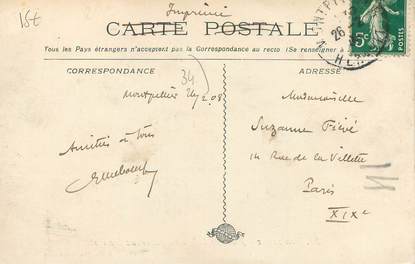 15€
Imprimé
CARTE POSTALE
Tous les Pays étrangers n'acceptent pas la Correspondance au recto (Se renseigner à
CORRESPONDANCE
ADRESSE
34
Montpellier 26/2.08
Mademoiselle
Suzanne Fiévé
Amitiés à tous
14 Rue de la Villette
Paris
XIXe
5c
26